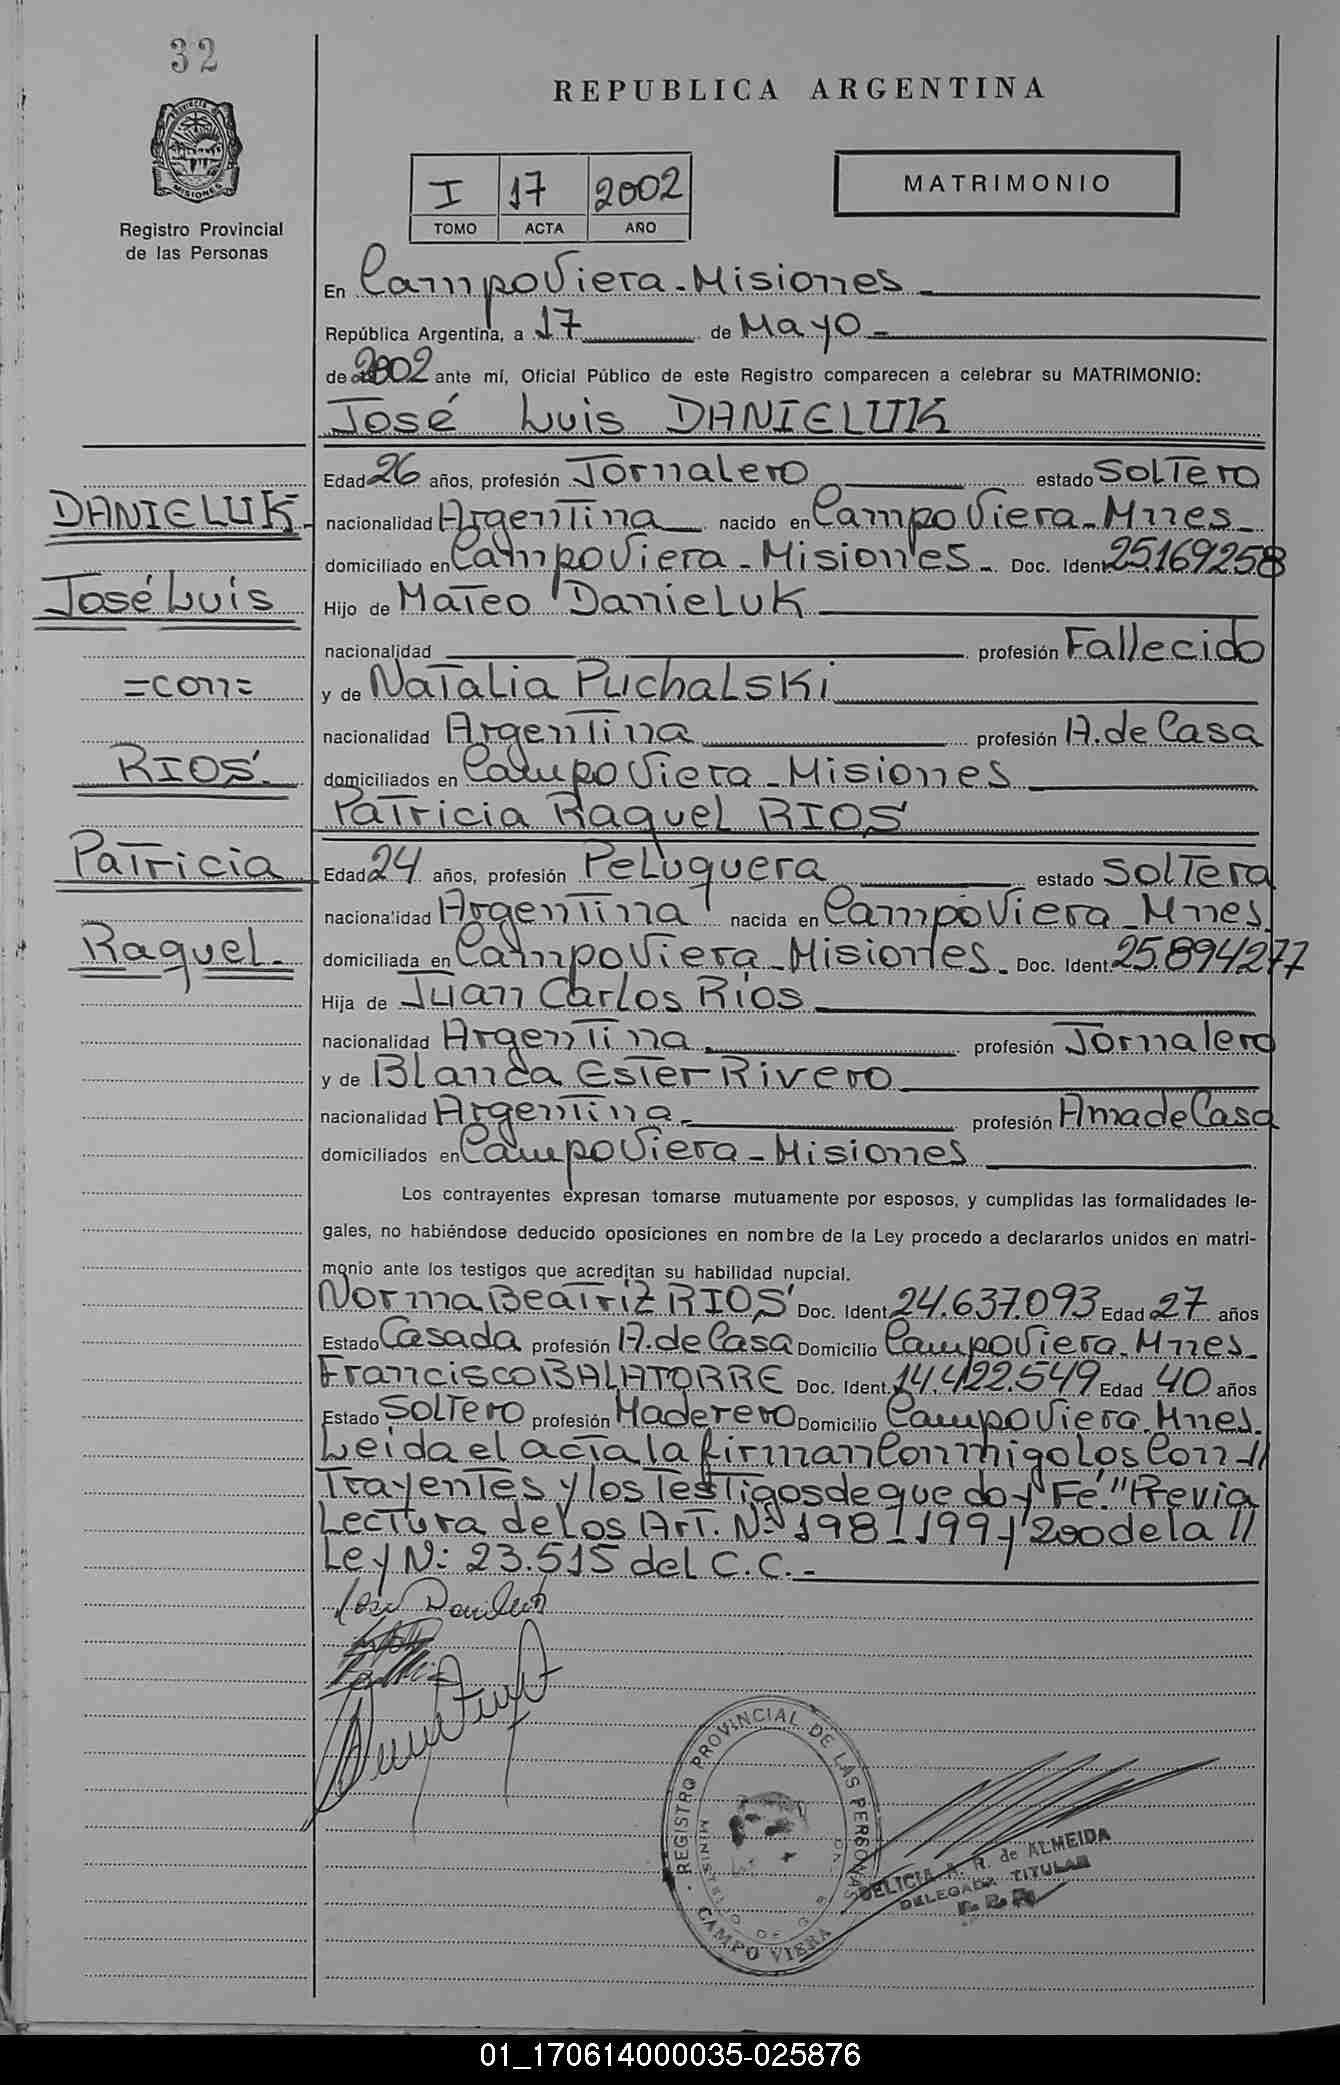 32
PROVINCIA DE
MISIONES
Registro Provincial
de las Personas
REPUBLICA ARGENTINA
I 17 2002
TOMO ACTA AÑO
MATRIMONIO
En Campo Viera - Misiones
República Argentina, a 17 de Mayo -
de 2002 ante mí, Oficial Público de este Registro comparecen a celebrar su MATRIMONIO:
José Luis DANIELUK
DANIELUK.
José Luis
=con=
RIOS.
Patricia
Raquel.
Edad 26 años, profesión Jornalero estado Soltero
nacionalidad Argentina nacido en Campo Viera - Mnes -
domiciliado en Campo Viera - Misiones - Doc. Ident. 25169258
Hijo de Mateo Danieluk
nacionalidad profesión Fallecido
y de Natalia Puchalski
nacionalidad Argentina profesión A. de Casa
domiciliados en Campo Viera - Misiones
Patricia Raquel RIOS
Edad 24 años, profesión Peluquera estado Soltera
nacionalidad Argentina nacida en Campo Viera - Mnes.
domiciliada en Campo Viera - Misiones - Doc. Ident. 25.894277
Hija de Juan Carlos Ríos
nacionalidad Argentina profesión Jornalero
y de Blanca Ester Rivero
nacionalidad Argentina - profesión Ama de Casa
domiciliados en Campo Viera - Misiones
Los contrayentes expresan tomarse mutuamente por esposos, y cumplidas las formalidades le-
gales, no habiéndose deducido oposiciones en nombre de la Ley procedo a declararlos unidos en matri-
monio ante los testigos que acreditan su habilidad nupcial.
Norma Beatriz RIOS Doc. Ident. 24.637.093 Edad 27 años
Estado Casada profesión A. de Casa Domicilio Campo Viera - Mnes -
Francisco BALATORRE Doc. Ident. 14.422.549 Edad 40 años
Estado Soltero profesión Maderero Domicilio Campo Viera. Mnes.
Leida el acta la firman Conmigo Los Con-//
Trayentes y los Testigos de que doy Fé." Previa
Lectura de los Art. Nº 198-199 y 200 de la //
Ley N: 23.515 del C.C. -
José Danieluk
REGISTRO PROVINCIAL DE LAS PERSONAS
MINISTERIO DE
CAMPO VIERA
DELICIA A. R. de ALMEIDA
DELEGADA TITULAR
01_170614000035-025876